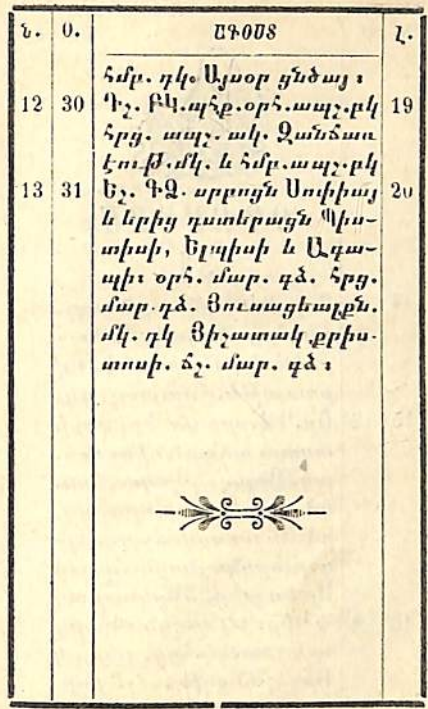 Ն. Օ. ՕԳՕՍՏ Լ.
հմբ. դկ. Այսօր ցնծայ ։
12 30 Դշ. ԲԿ. պհք. օրհ. ապշ. բկ 19
հրց. ապշ. ակ. Զանճառ
էութ. մկ. և հմբ. ապշ. բկ
13 31 Եշ. ԳՁ. սրբոյն Սոփիայ 20
և երից դստերացն Պիս-
տիսի, Ելպիսի և Ագա-
պի։ օրհ. մար. գձ. հրց.
մար. դձ. Յուսացեալքն.
մկ. դկ Յիշատակ քրիս-
տոսի. ճշ. մար. գձ ։